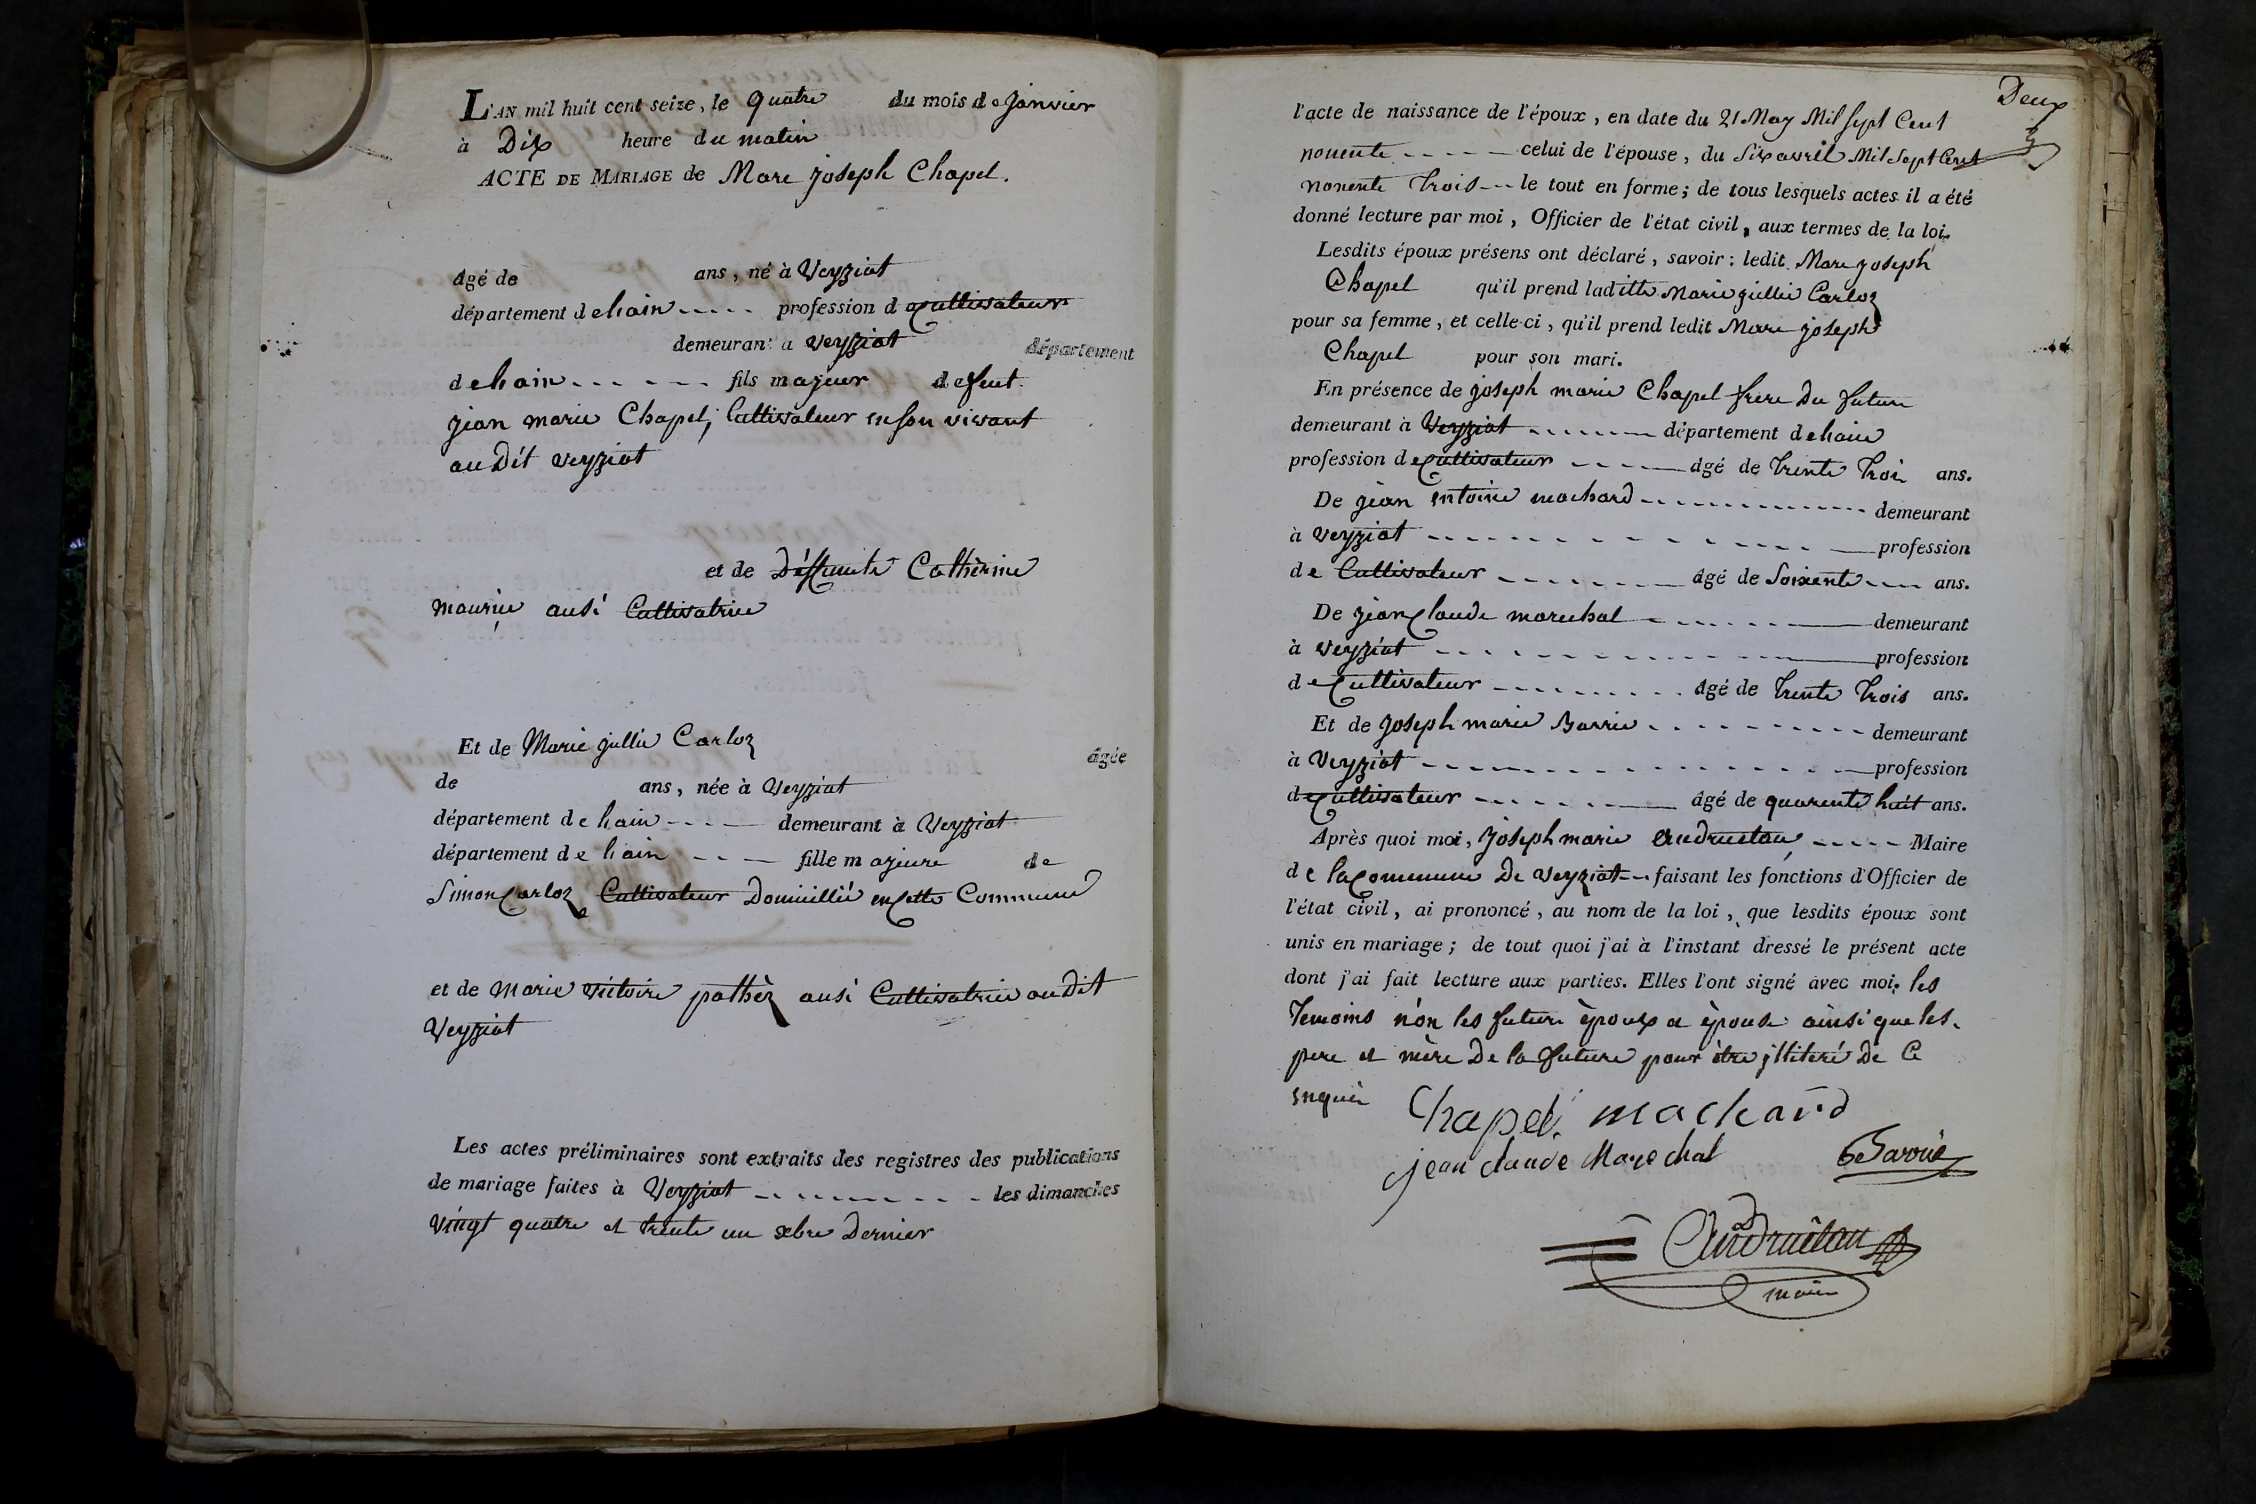 L'AN mil huit cent seize, le quatre du mois de janvier
à Dix heure du matin
ACTE DE MARIAGE de Marc joseph Chapel.
âgé de ans, né à Veyziat
département de hain profession de Cultivateur
demeurant à Veyziat département
de hain fils majeur de feut
jean marie Chapel, Cultivateur en son vivant
au Dit veyziat
et de Déffunte Cathèrine
mauriè ausi Cultivatrice
Et de Marie jullie Carloz âgée
de ans, née à Veyziat
département de hain demeurant à Veyziat
département de hain fille majeure de
Simon Carloz Cultivateur Domicillié en Cette Commune
et de Marie victoire pathèz ausi Cultivatrice au Dit
Veyziat
Les actes préliminaires sont extraits des registres des publications
de mariage faites à Veyziat les dimanches
vingt quatre et trente un xbre Dernier
Deux
l'acte de naissance de l'époux, en date du 21 May Mil sept Cent
nonente celui de l'épouse, du Six avril Mil Sept Cent
nonente trois le tout en forme; de tous lesquels actes il a été
donné lecture par moi, Officier de l'état civil, aux termes de la loi.
Lesdits époux présens ont déclaré, savoir: ledit Marc joseph
Chapel qu'il prend laditte Marie jullie Carloz
pour sa femme, et celle-ci, qu'il prend ledit Marc joseph
Chapel pour son mari.
En présence de joseph marie Chapel frere Du futur
demeurant à Veyziat département de hain
profession de Cultivateur âgé de trente troi ans.
De jean entoine machard demeurant
à veyziat profession
de Cultivateur âgé de Soixente ans.
De jean Claude marechal demeurant
à veyziat profession
de Cultivateur âgé de trente trois ans.
Et de joseph marie Barrie demeurant
à Veyziat profession
de Cultivateur âgé de quarente huit ans.
Après quoi moi, joseph marie Andruetan Maire
de la Commune De veyziat faisant les fonctions d'Officier de
l'état civil, ai prononcé, au nom de la loi, que lesdits époux sont
unis en mariage; de tout quoi j'ai à l'instant dressé le présent acte
dont j'ai fait lecture aux parties. Elles l'ont signé avec moi. les
temoins nón les futurs èpoux et èpouse ainsi que les
pere et mère De la future pour être jlliteré De Ce
enquie
Chapel. machard
jean claude Marechal Bavoüe
Andruetan
maire